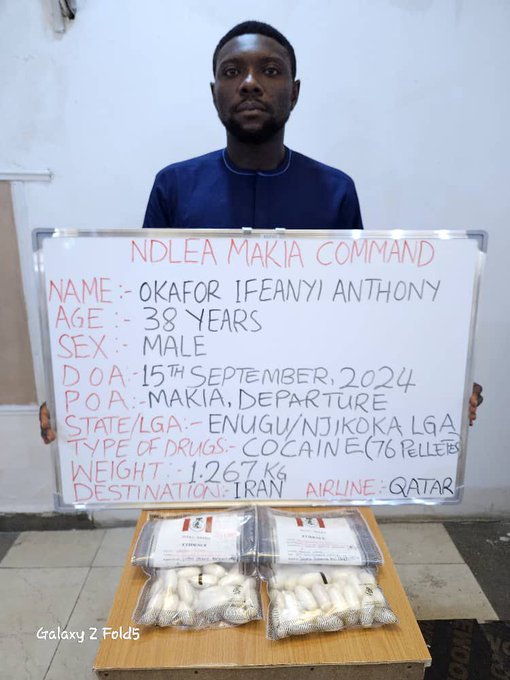 NDLEA MAKIA COMMAND
NAME:- OKAFOR IFEANYI ANTHONY
AGE:- 38 YEARS
SEX:- MALE
DOA:- 15TH SEPTEMBER, 2024
POA:- MAKIA, DEPARTURE
STATE/LGA:- ENUGU/NJIKOKA LGA
TYPE OF DRUGS:- COCAINE (76 PELLETES
WEIGHT:- 1.267KG
DESTINATION:- IRAN AIRLINE:- QATAR
EVIDENCE
EVIDENCE
Galaxy Z Fold5